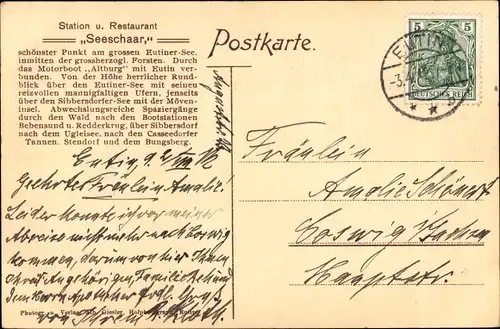 Station u. Restaurant
„Seeschaar,"
schönster Punkt am grossen Eutiner-See.
inmitten der grossherzogl. Forsten. Durch
das Motorboot „Altburg" mit Eutin ver-
bunden. Von der Höhe herrlicher Rund-
blick über den Eutiner-See mit seinen
reizvollen mannigfaltigen Ufern, jenseits
über den Sibbersdorfer-See mit der Möven-
insel. Abwechslungsreiche Spaziergänge
durch den Wald nach den Bootstationen
Bebensund u. Redderkrug, über Sibbersdorf
nach dem Ugleisee, nach den Casseedorfer
Tannen, Stendorf und dem Bungsberg.
Eutin, 12
Geehrtes Fräulein Amalie!
Leider konnte ich vor meiner
Abreise nicht mehr nach Coswig
kommen, darum von hier Ihnen
Ihren Angehörigen, Familie
Gruß
von Ihrem
Photogr. u. Verlag Giesler, Hofphotograph, Eutin
Postkarte.
5 5
DEUTSCHES REICH
EUTIN
Fräulein
Amalie Schönert
Coswig Sachsen
Hauptstr.